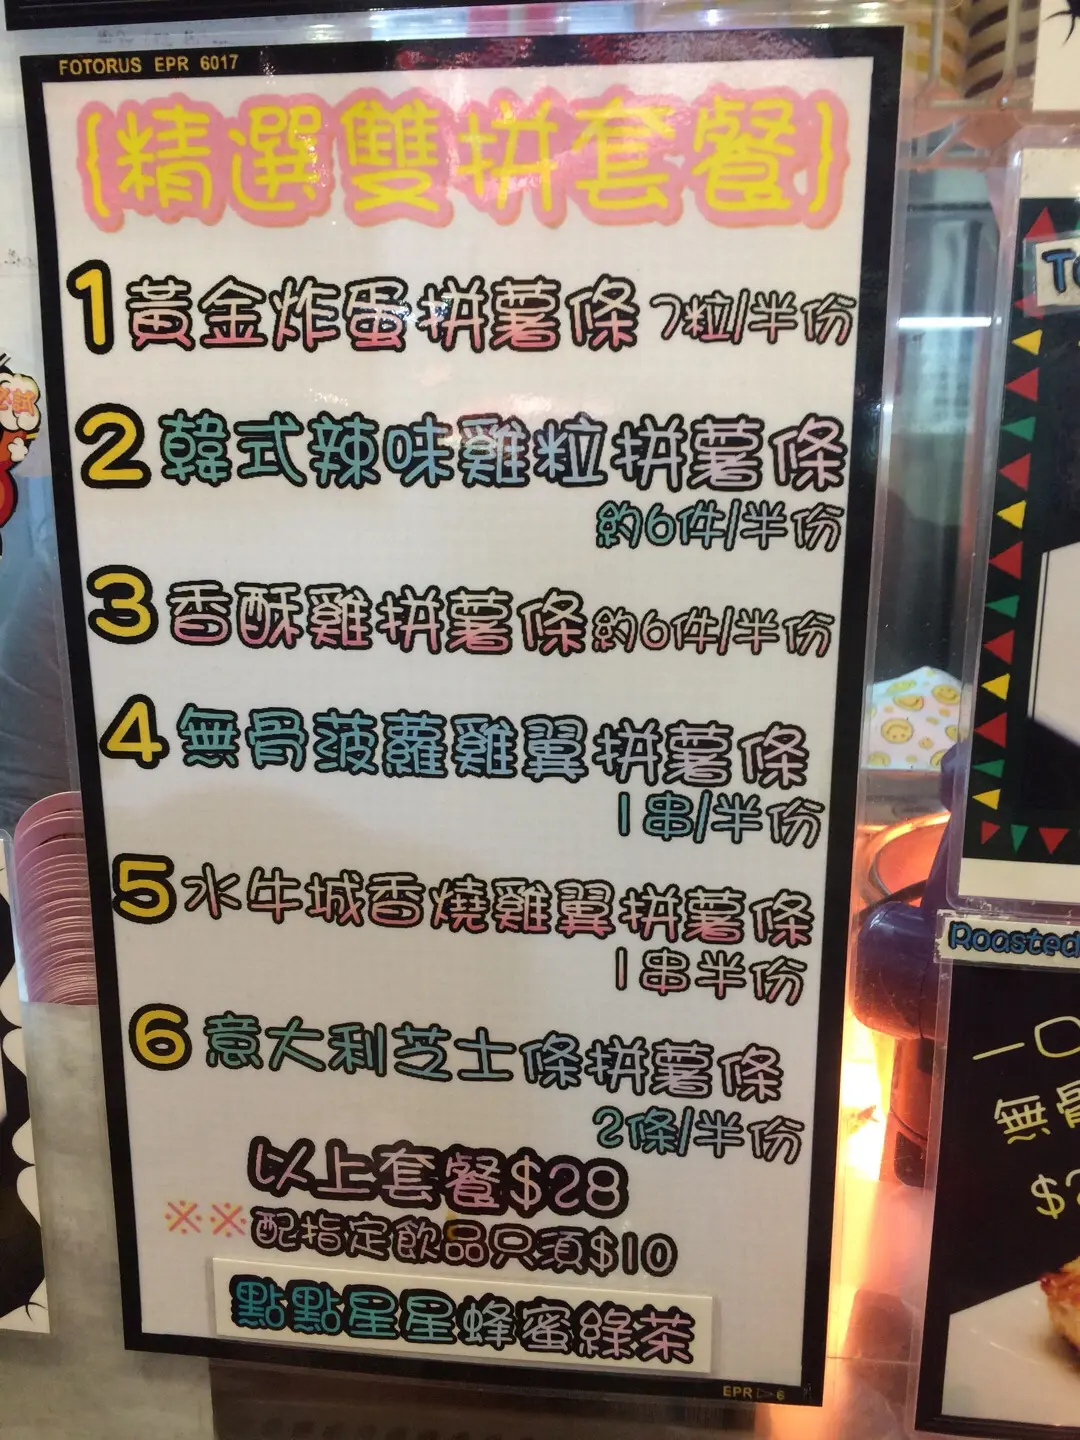 FOTORUS EPR 6017
{精選雙拼套餐}
1 黃金炸蛋拼薯條 7粒/半份
2 韓式辣味雞粒拼薯條
約6件/半份
3 香酥雞拼薯條 約6件/半份
4 無骨菠蘿雞翼拼薯條
1串/半份
5 水牛城香燒雞翼拼薯條
1串半份
6 意大利芝士條拼薯條
2條/半份
以上套餐$28
※※配指定飲品只須$10
點點星星蜂蜜綠茶
EPR ▷ 6
Roasted
一口
無骨